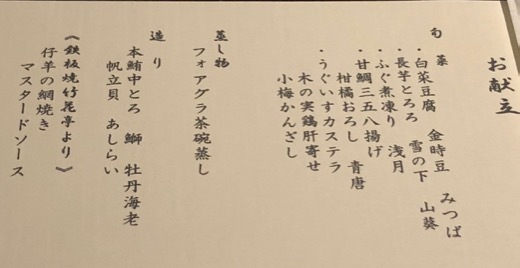 お献立
旬菜
・白菜豆腐 金時豆 みつば
・長芋とろろ 雪の下 山葵
・ふぐ煮凍り 浅月
・甘鯛三五八揚げ
柑橘おろし 青唐
・うぐいすカステラ
木の実鶏肝寄せ
小梅かんざし
蒸し物
フォアグラ茶碗蒸し
造り
本鮪中とろ 鰤 牡丹海老
帆立貝 あしらい
《鉄板焼竹花亭より》
仔羊の網焼き
マスタードソース